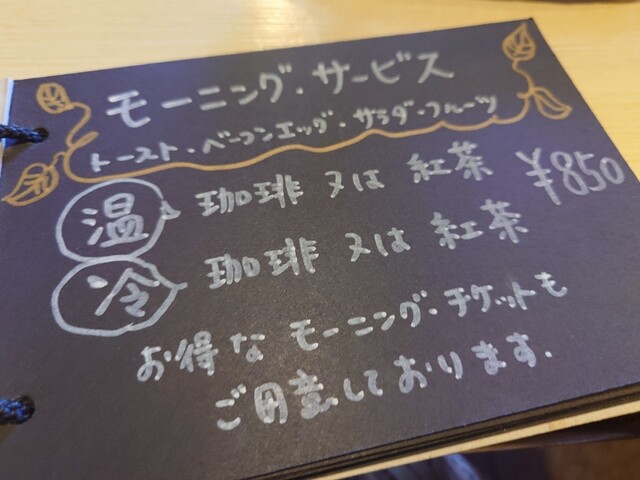 モーニング・サービス
トースト・ベーコンエッグ・サラダ・フルーツ
温 珈琲 又は 紅茶 ¥850
冷 珈琲 又は 紅茶
お得な モーニング・チケットも
ご用意しております.